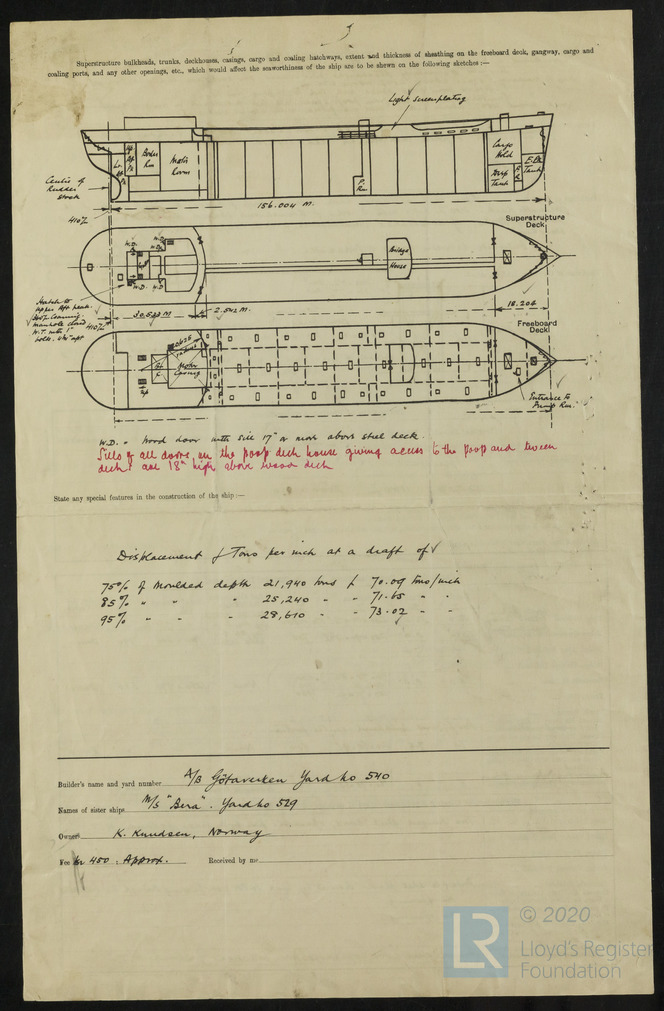 Superstructure bulkheads, trunks, deckhouses, casings, cargo and coaling hatchways, extent and thickness of sheathing on the freeboard deck, gangway, cargo and
coaling ports, and any other openings, etc., which would affect the seaworthiness of the ship are to be shewn on the following sketches :—
Light screenplating
Boiler Rm
Motor Room
P. Rm
Cargo Hold
Deep Tank
F. Pk Tank
Centre of Rudder Stock
410%
156.004 M.
Superstructure Deck
W.D.
W.D.
W.D.
W.D.
Bridge House
Hatch to
upper Aft peak.
coaming
manhole closed
W.T. with 1"
bolts.
410%
30.523 M
2.542 M.
18.204
Freeboard Deck
Motor Casing
Entrance to Pump Rm.
W.D. = Wood door with sill 17" or more above steel deck.
Sills of all doors, in the poop deck house giving access to the poop and tween
decks are 18" high above wood deck
State any special features in the construction of the ship :—
Displacement & Tons per inch at a draft of
75% of moulded depth 21,940 tons & 70.09 tons/inch
85% " " " 25,240 - - 71.65 - -
95% - - - 28,610 - - 73.02 - -
Builder's name and yard number A/B Götaverken Yard No 540
Names of sister ships M/S "Bera". Yard No 529
Owners K. Knudsen, Norway
Fee Kr 450 : Approx. Received by me
LR
© 2020
Lloyd's Register
Foundation